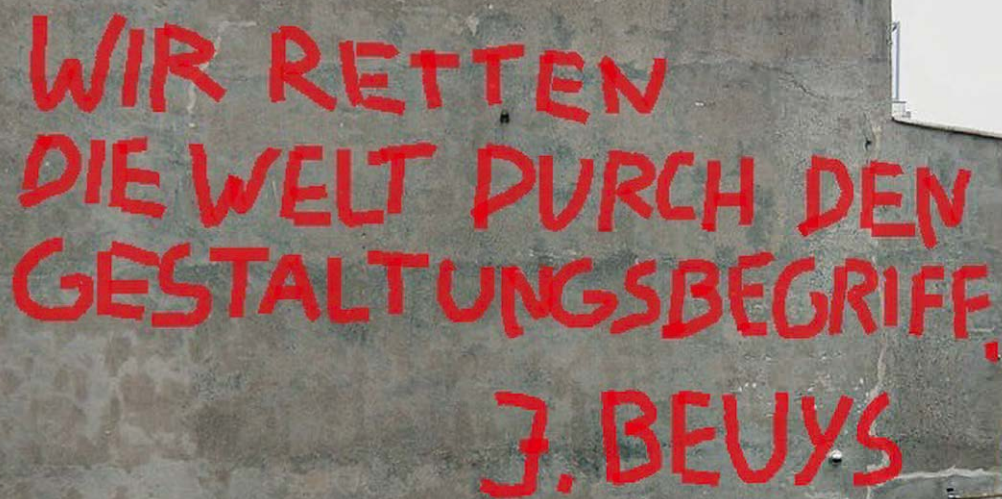 WIR RETTEN
DIE WELT DURCH DEN
GESTALTUNGSBEGRIFF.
J. BEUYS